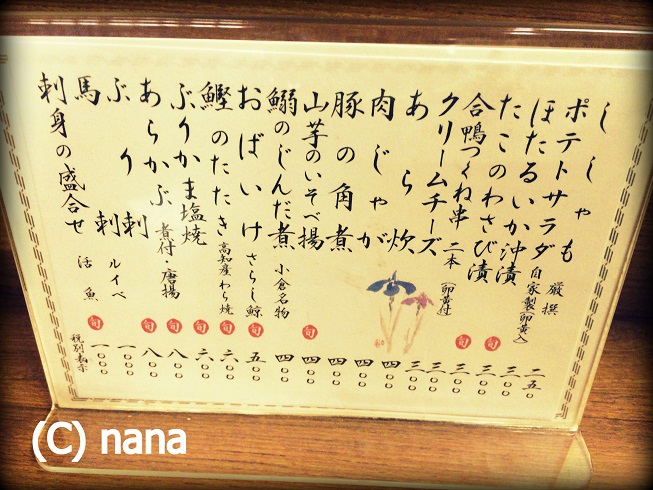 ししゃも 厳撰 二五〇
ポテトサラダ 自家製(卵黄入) 三〇〇
ほたるいか沖漬 旬 三〇〇
たこのわさび漬 旬 三〇〇
合鴨つくね串 二本(卵黄付) 三〇〇
クリームチーズ 三〇〇
あら炊 四〇〇
肉じゃが 四〇〇
豚の角煮 四〇〇
山芋のいそべ揚 旬 四〇〇
鰯のじんだ煮 小倉名物 四〇〇
おばいけ さらし鯨 五〇〇
鰹のたたき 高知産わら焼 旬 六〇〇
ぶりかま塩焼 旬 六〇〇
あらかぶ 煮付・唐揚 旬 八〇〇
ぶり刺 旬 八〇〇
馬刺 ルイベ 一〇〇〇
刺身の盛合せ 活魚 旬 一〇〇〇
税別表示
(C) nana